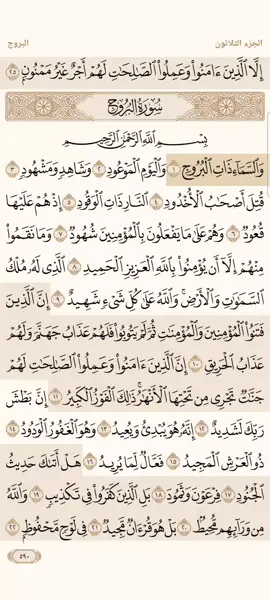 الجزء الثلاثون البروج
إِلَّا الَّذِينَ ءَامَنُوا۟ وَعَمِلُوا۟ الصَّٰلِحَٰتِ لَهُمْ أَجْرٌ غَيْرُ مَمْنُونٍۭ ٢٥
سُورَةُ الْبُرُوجِ
بِسْمِ اللَّهِ الرَّحْمَٰنِ الرَّحِيمِ
وَالسَّمَآءِ ذَاتِ الْبُرُوجِ ١ وَالْيَوْمِ الْمَوْعُودِ ٢ وَشَاهِدٍ وَمَشْهُودٍ ٣
قُتِلَ أَصْحَٰبُ الْأُخْدُودِ ٤ النَّارِ ذَاتِ الْوَقُودِ ٥ إِذْ هُمْ عَلَيْهَا
قُعُودٌ ٦ وَهُمْ عَلَىٰ مَا يَفْعَلُونَ بِالْمُؤْمِنِينَ شُهُودٌ ٧ وَمَا نَقَمُوا۟
مِنْهُمْ إِلَّآ أَن يُؤْمِنُوا۟ بِاللَّهِ الْعَزِيزِ الْحَمِيدِ ٨ الَّذِى لَهُۥ مُلْكُ
السَّمَٰوَٰتِ وَالْأَرْضِ ۚ وَاللَّهُ عَلَىٰ كُلِّ شَىْءٍ شَهِيدٌ ٩ إِنَّ الَّذِينَ
فَتَنُوا۟ الْمُؤْمِنِينَ وَالْمُؤْمِنَٰتِ ثُمَّ لَمْ يَتُوبُوا۟ فَلَهُمْ عَذَابُ جَهَنَّمَ وَلَهُمْ
عَذَابُ الْحَرِيقِ ١٠ إِنَّ الَّذِينَ ءَامَنُوا۟ وَعَمِلُوا۟ الصَّٰلِحَٰتِ لَهُمْ
جَنَّٰتٌ تَجْرِى مِن تَحْتِهَا الْأَنْهَٰرُ ۚ ذَٰلِكَ الْفَوْزُ الْكَبِيرُ ١١ إِنَّ بَطْشَ
رَبِّكَ لَشَدِيدٌ ١٢ إِنَّهُۥ هُوَ يُبْدِئُ وَيُعِيدُ ١٣ وَهُوَ الْغَفُورُ الْوَدُودُ ١٤
ذُو الْعَرْشِ الْمَجِيدُ ١٥ فَعَّالٌ لِّمَا يُرِيدُ ١٦ هَلْ أَتَىٰكَ حَدِيثُ
الْجُنُودِ ١٧ فِرْعَوْنَ وَثَمُودَ ١٨ بَلِ الَّذِينَ كَفَرُوا۟ فِى تَكْذِيبٍ ١٩ وَاللَّهُ
مِن وَرَآئِهِم مُّحِيطٌۢ ٢٠ بَلْ هُوَ قُرْءَانٌ مَّجِيدٌ ٢١ فِى لَوْحٍ مَّحْفُوظٍۭ ٢٢
٥٩٠